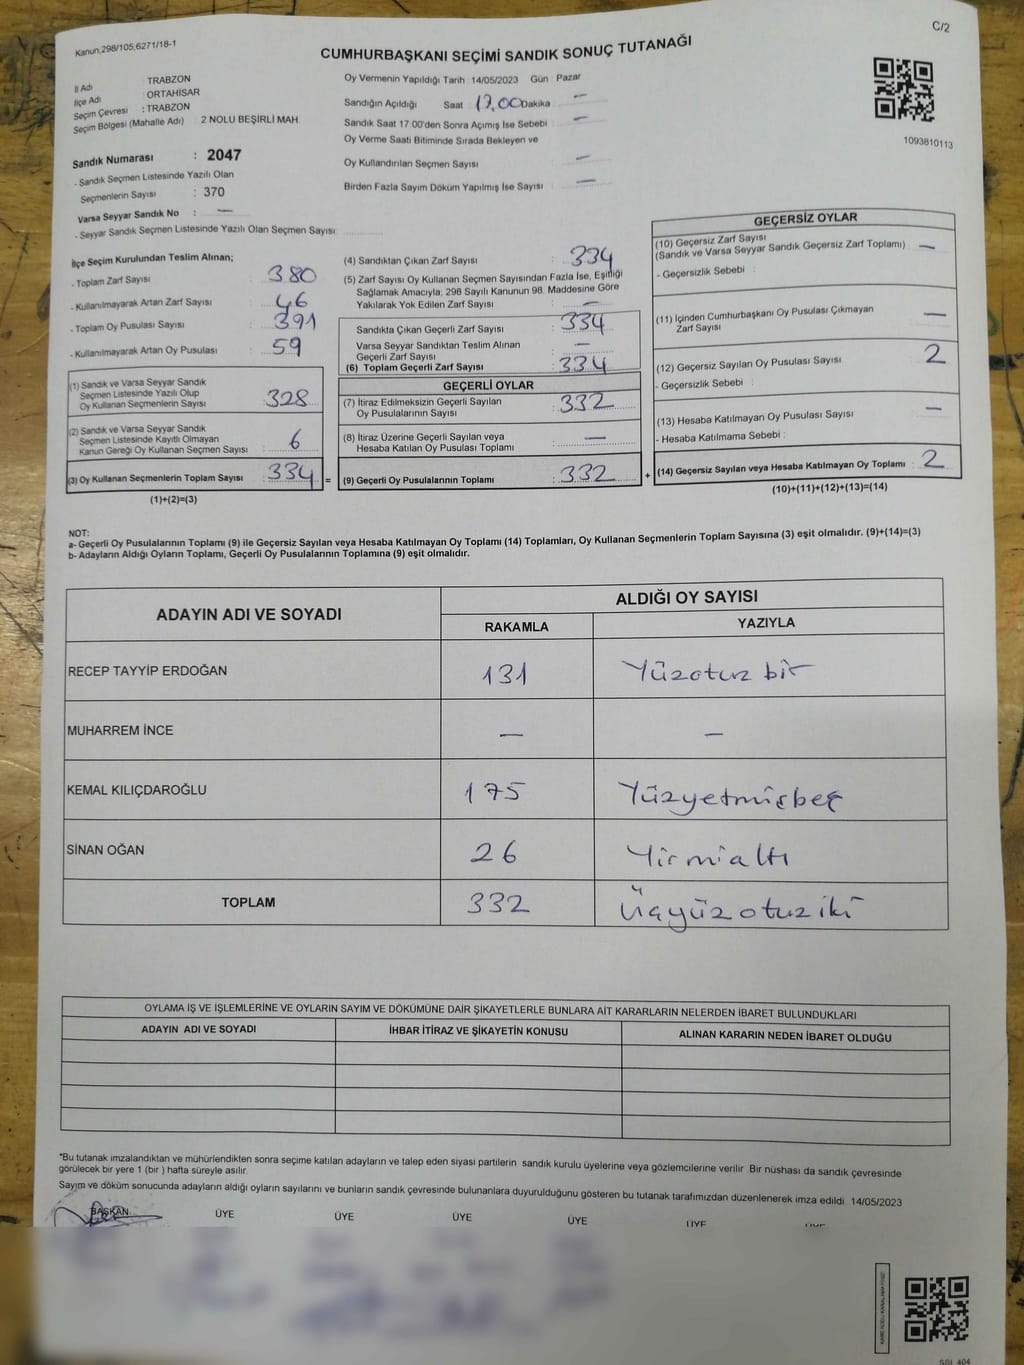 Kanun,298/105,6271/18-1
C/2
CUMHURBAŞKANI SEÇİMİ SANDIK SONUÇ TUTANAĞI
İl Adı TRABZON
İlçe Adı ORTAHİSAR
Seçim Çevresi : TRABZON
Seçim Bölgesi (Mahalle Adı) 2 NOLU BEŞİRLİ MAH.
Sandık Numarası : 2047
- Sandık Seçmen Listesinde Yazılı Olan
Seçmenlerin Sayısı : 370
Varsa Seyyar Sandık No : —
- Seyyar Sandık Seçmen Listesinde Yazılı Olan Seçmen Sayısı
Oy Vermenin Yapıldığı Tarih 14/05/2023 Gün Pazar
Sandığın Açıldığı Saat 17.00 Dakika —
Sandık Saat 17:00'den Sonra Açımış İse Sebebi : —
Oy Verme Saati Bitiminde Sırada Bekleyen ve
Oy Kullandırılan Seçmen Sayısı —
Birden Fazla Sayım Döküm Yapılmış İse Sayısı —
1093810113
İlçe Seçim Kurulundan Teslim Alınan;
- Toplam Zarf Sayısı : 380
- Kullanılmayarak Artan Zarf Sayısı : 46
- Toplam Oy Pusulası Sayısı : 391
- Kullanılmayarak Artan Oy Pusulası : 59
(1) Sandık ve Varsa Seyyar Sandık
Seçmen Listesinde Yazılı Olup
Oy Kullanan Seçmenlerin Sayısı : 328
(2) Sandık ve Varsa Seyyar Sandık
Seçmen Listesinde Kayıtlı Olmayan
Kanun Gereği Oy Kullanan Seçmen Sayısı : 6
(3) Oy Kullanan Seçmenlerin Toplam Sayısı : 334 =
(1)+(2)=(3)
(4) Sandıktan Çıkan Zarf Sayısı : 334
(5) Zarf Sayısı Oy Kullanan Seçmen Sayısından Fazla İse, Eşitliği
Sağlamak Amacıyla; 298 Sayılı Kanunun 98. Maddesine Göre
Yakılarak Yok Edilen Zarf Sayısı : —
Sandıkta Çıkan Geçerli Zarf Sayısı : 334
Varsa Seyyar Sandıktan Teslim Alınan
Geçerli Zarf Sayısı : —
(6) Toplam Geçerli Zarf Sayısı : 334
GEÇERLİ OYLAR
(7) İtiraz Edilmeksizin Geçerli Sayılan
Oy Pusulalarının Sayısı : 332
(8) İtiraz Üzerine Geçerli Sayılan veya
Hesaba Katılan Oy Pusulası Toplamı : —
(9) Geçerli Oy Pusulalarının Toplamı : 332 +
GEÇERSİZ OYLAR
(10) Geçersiz Zarf Sayısı
(Sandık ve Varsa Seyyar Sandık Geçersiz Zarf Toplamı) —
- Geçersizlik Sebebi :
(11) İçinden Cumhurbaşkanı Oy Pusulası Çıkmayan
Zarf Sayısı —
(12) Geçersiz Sayılan Oy Pusulası Sayısı 2
- Geçersizlik Sebebi :
(13) Hesaba Katılmayan Oy Pusulası Sayısı —
- Hesaba Katılmama Sebebi :
(14) Geçersiz Sayılan veya Hesaba Katılmayan Oy Toplamı : 2
(10)+(11)+(12)+(13)=(14)
NOT:
a- Geçerli Oy Pusulalarının Toplamı (9) ile Geçersiz Sayılan veya Hesaba Katılmayan Oy Toplamı (14) Toplamları, Oy Kullanan Seçmenlerin Toplam Sayısına (3) eşit olmalıdır. (9)+(14)=(3)
b- Adayların Aldığı Oyların Toplamı, Geçerli Oy Pusulalarının Toplamına (9) eşit olmalıdır.
ADAYIN ADI VE SOYADI
ALDIĞI OY SAYISI
RAKAMLA YAZIYLA
RECEP TAYYİP ERDOĞAN 131 Yüzotuz bir
MUHARREM İNCE — —
KEMAL KILIÇDAROĞLU 175 Yüzyetmişbeş
SİNAN OĞAN 26 Yirmialtı
TOPLAM 332 Üçyüzotuziki
OYLAMA İŞ VE İŞLEMLERİNE VE OYLARIN SAYIM VE DÖKÜMÜNE DAİR ŞİKAYETLERLE BUNLARA AİT KARARLARIN NELERDEN İBARET BULUNDUKLARI
ADAYIN ADI VE SOYADI İHBAR İTİRAZ VE ŞİKAYETİN KONUSU ALINAN KARARIN NEDEN İBARET OLDUĞU
*Bu tutanak imzalandıktan ve mühürlendikten sonra seçime katılan adayların ve talep eden siyasi partilerin sandık kurulu üyelerine veya gözlemcilerine verilir. Bir nüshası da sandık çevresinde
görülecek bir yere 1 (bir ) hafta süreyle asılır.
Sayım ve döküm sonucunda adayların aldığı oyların sayılarını ve bunların sandık çevresinde bulunanlara duyurulduğunu gösteren bu tutanak tarafımızdan düzenlenerek imza edildi. 14/05/2023
BAŞKAN ÜYE ÜYE ÜYE ÜYE ÜYE ÜYE